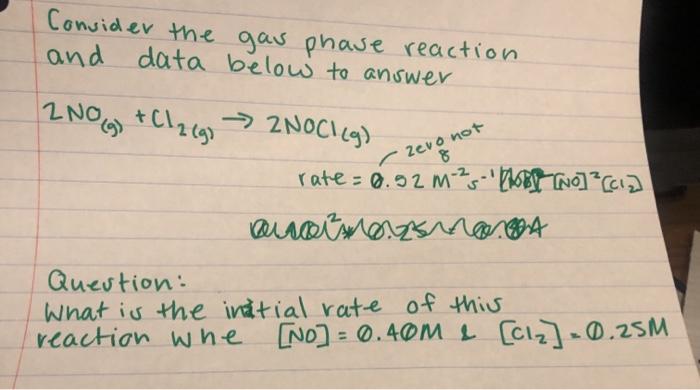 Consider the gas phase reaction
and data below to answer
2NO(g) + Cl2(g) → 2NOCl(g)
zero not
8
rate = 0.92 M⁻²s⁻¹ [NO]²[Cl2]
Question:
What is the initial rate of this
reaction whe [NO] = 0.40M & [Cl2] = 0.25M